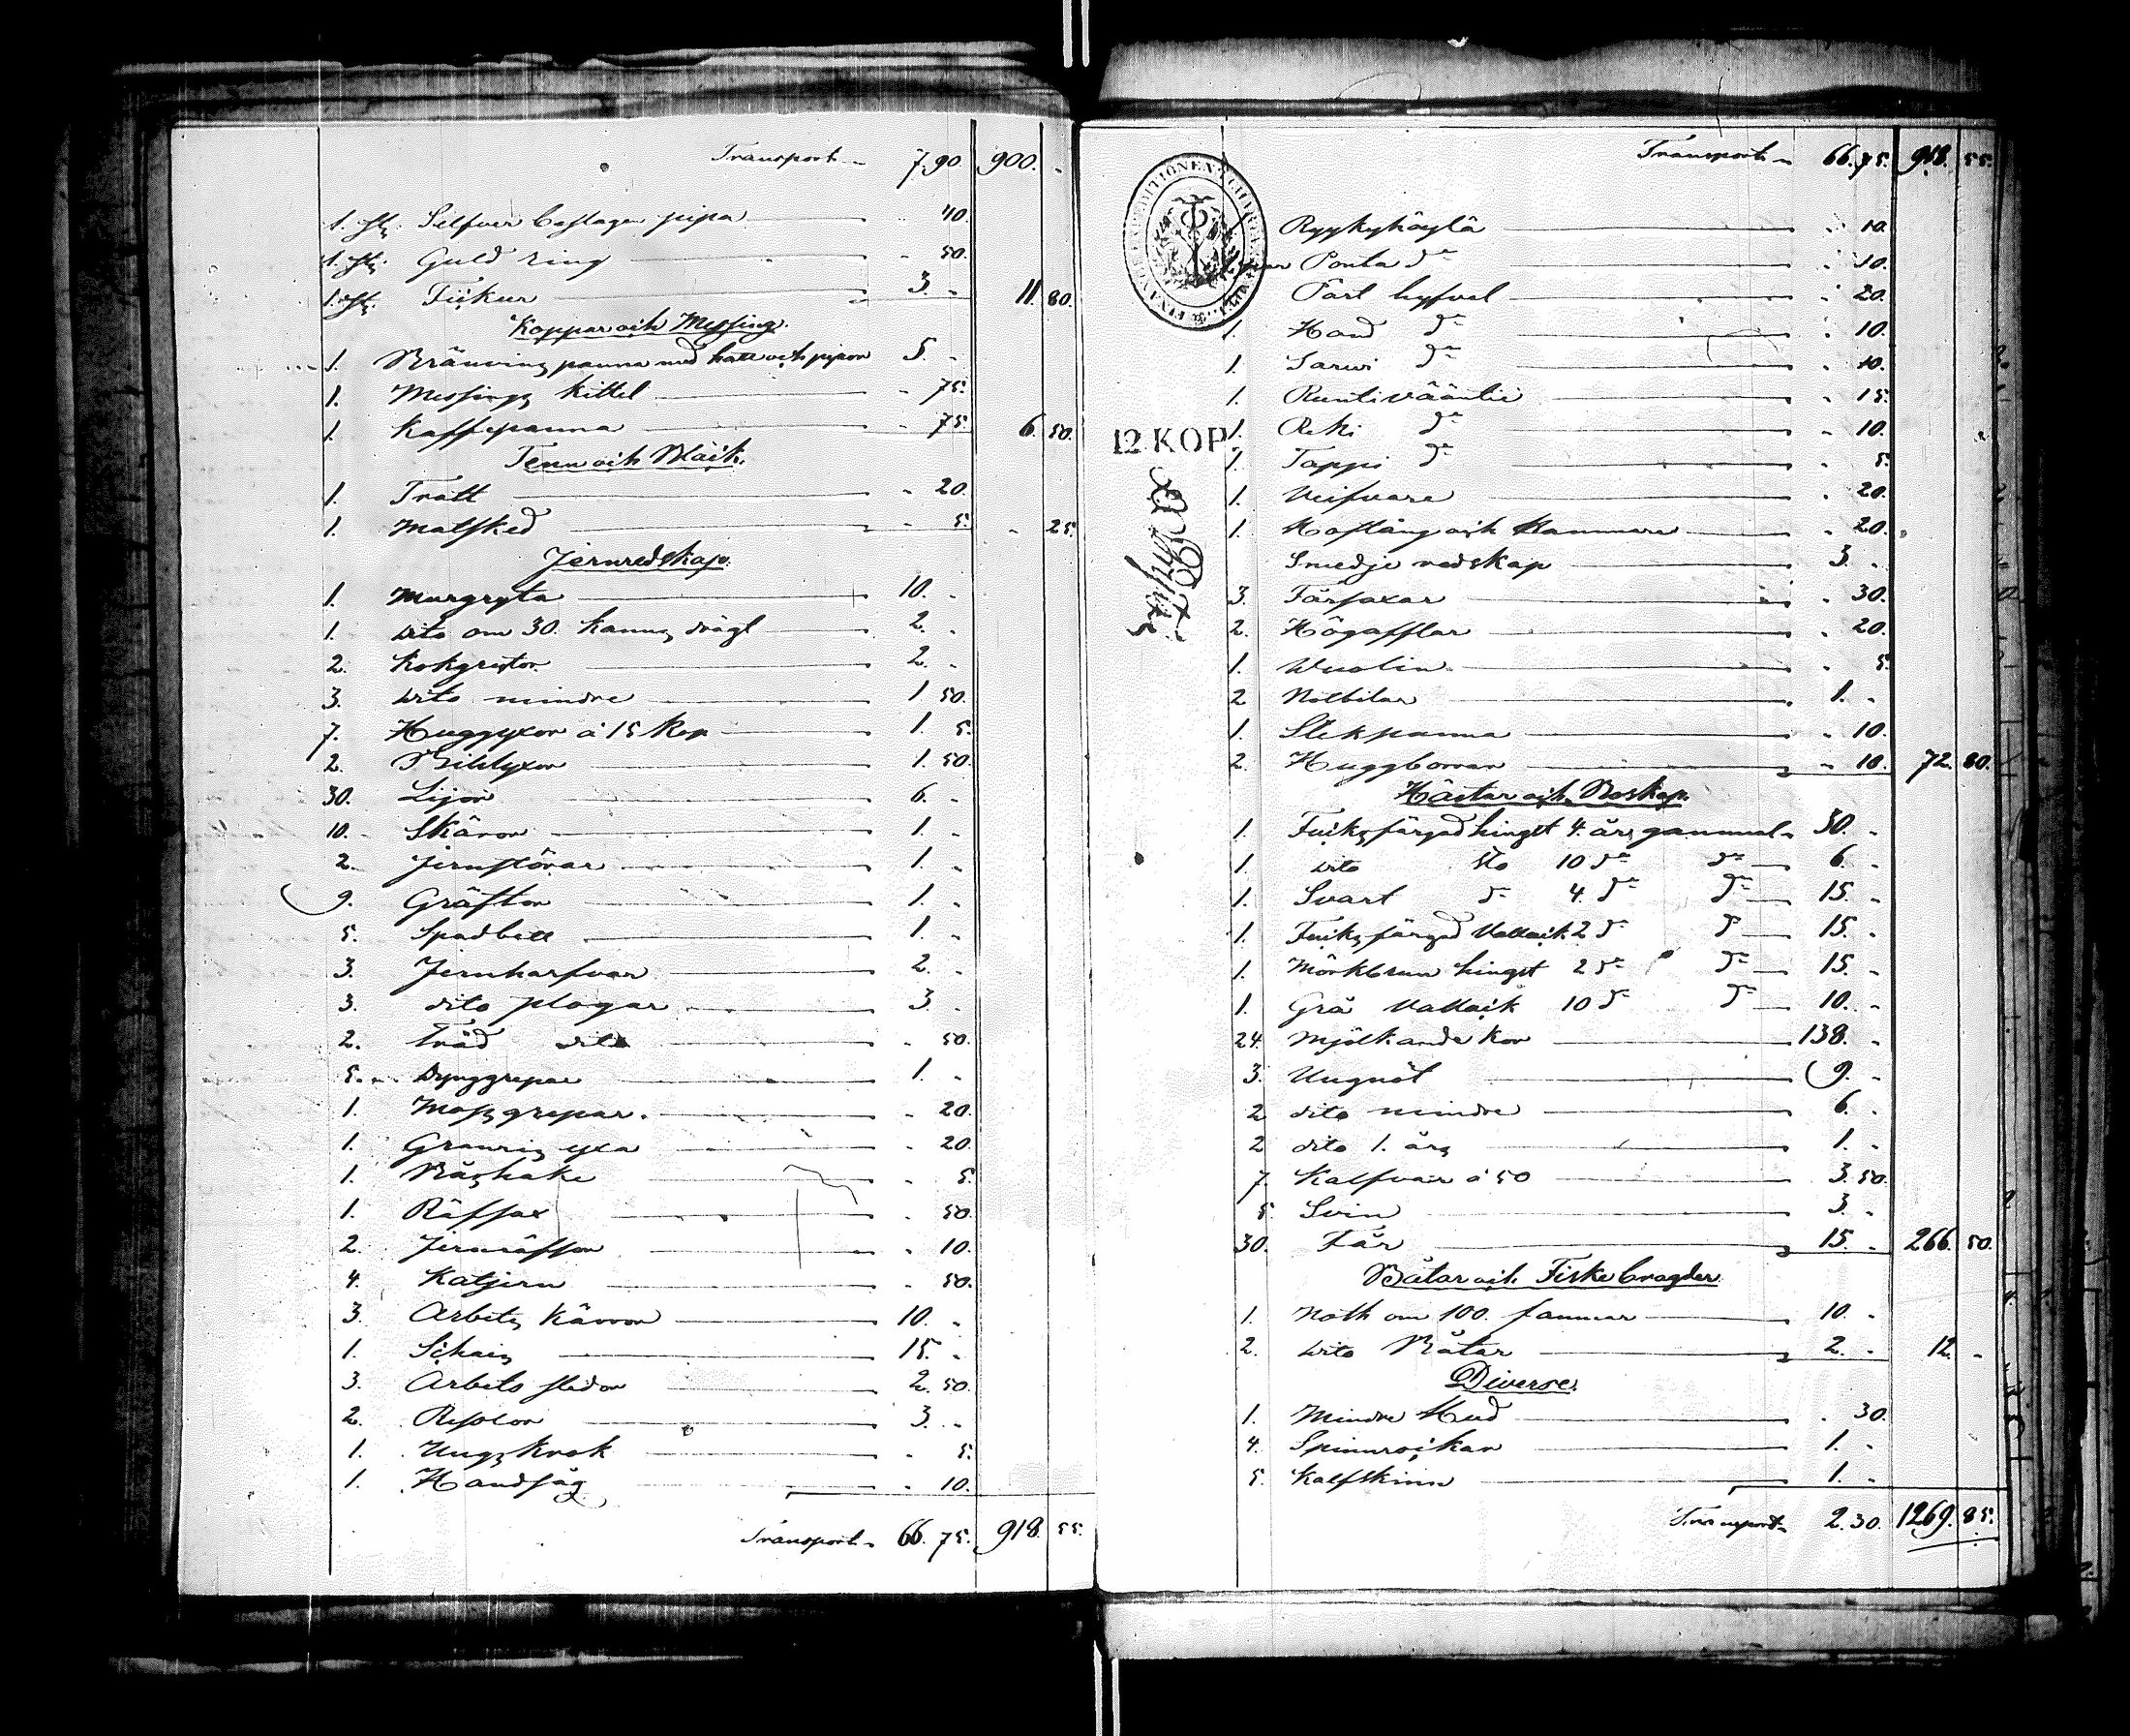 Transport 7.90. 900. -
1. st. Silfver beslagen pipa - 40.
1. st. Guld ring - 50.
1. st. Fickur 3. - 11. 80.
Koppar och Messing.
1. Bränvins panna med hatt och pipor 5. -
1. Messings kittel - 75.
1. Kaffepanna - 75. 6. 50.
Tenn och Bläck.
1. Tratt - 20.
1. Matsked - 5. - 25.
Jernredskap.
1. Murgryta 10. -
1. dito om 30. kannors drägt 2. -
2. Kokgrytor 2. -
3. dito mindre 1 50.
7. Huggyxor à 15 Kop 1. 5.
2. Bihlyxor 1. 50.
30. Lijor 6. -
10. Skäror 1. -
2. Jernstörar 1. -
9. Gräftor 1. -
5. Spadbett 1. -
3. Jernharfvar 2. -
3. dito plogar 3. -
2. Träd dito - 50.
5. Dynggrepar 1. -
1. Mossgrepar. - 20.
1. Granris yxa - 20.
1. Båshake - 5.
1. Råfsax - 50.
2. Jernräfsor - 10.
4. Katjern - 50.
3. Arbets kärror 10. -
1. Schais 15. -
3. Arbets slädor 2. 50.
2. Resslor 3. -
1. Ungskrok - 5.
1. Handsåg - 10.
Transport 66. 75. 918. 55.
Transport 66. 75. 918. 55.
12 KOP
Ryykyhöylä - 10.
1 par Ponta do - 10.
1. Parl hyfvel - 20.
1. Hand do - 10.
1. Sarwi do - 10.
1. Runtivääntiö - 15.
1. Reki do - 10.
1. Tappi do - 5.
1. Vefvare - 20.
1. Hoftång och Hammare - 20.
Smedje redskap 3. -
3. Fårsaxar - 30.
2. Högafflar - 20.
1. Wuolin - 5.
2 Notbilar 1. -
1. Stekpanna - 10.
2. Huggborrar - 10. 72. 80.
Hästar och Boskap.
1. Fuksfärgad hingst 4. års gammal 30. -
1. dito sto 10 do do 6. -
1. Svart do 4. do do 15. -
1. Fuksfärgad Vallack 2 do do 15. -
1. Mörkbrun hingst 2 do do 15. -
1. Grå Vallack 10 do do 10. -
24. Mjölkande kor 138. -
3. Ungnöt 9. -
2 dito mindre 6. -
2 dito 1. års 1. -
7. Kalfvar à 50 3. 50.
5. Svin 3. -
30. Får 15. - 266. 50.
Båtar och Fiske bragder
1. Noth om 100. famnar 10. -
2. dito Båtar 2. - 12. -
Diverse.
1. Mindre Hud - 30.
4. Spinnrockar 1. -
5. Kalfskinn 1. -
Transport 2. 30. 1269. 85.